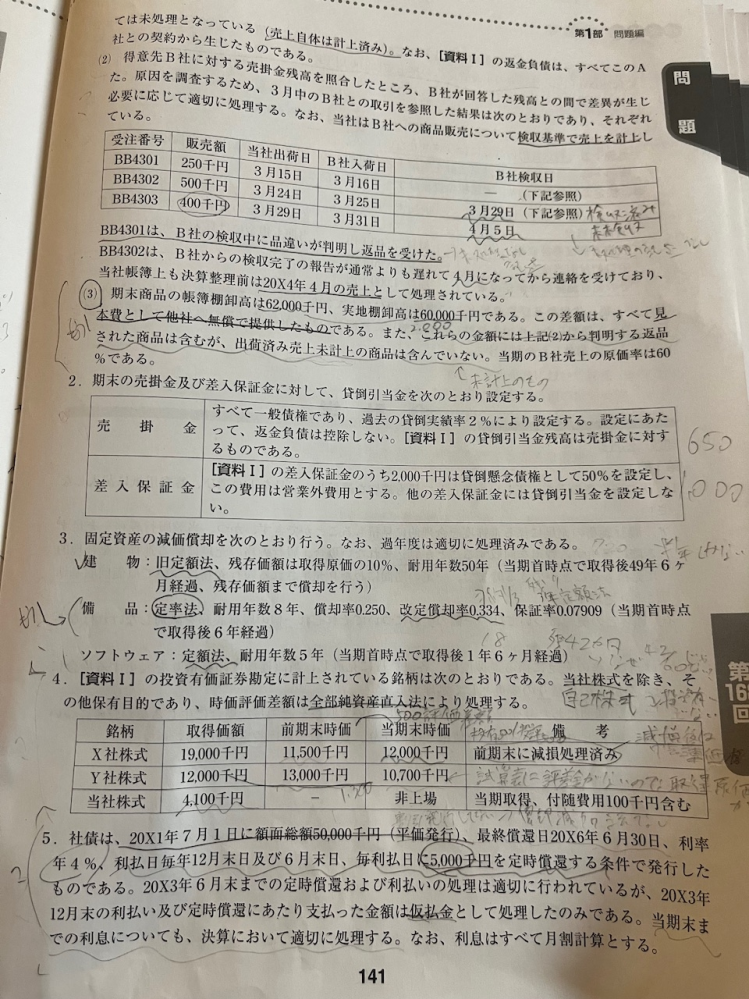 第1部 問題編
ては未処理となっている(売上自体は計上済み)。なお、[資料Ⅰ]の返金負債は、すべてこのA
社との契約から生じたものである。
問題
(2) 得意先B社に対する売掛金残高を照合したところ、B社が回答した残高との間で差異が生じ
た。原因を調査するため、3月中のB社との取引を参照した結果は次のとおりであり、それぞれ
必要に応じて適切に処理する。なお、当社はB社への商品販売について検収基準で売上を計上し
ている。
受注番号 販売額 当社出荷日 B社入荷日 B社検収日
BB4301 250千円 3月15日 3月16日 ― (下記参照)
BB4302 500千円 3月24日 3月25日 3月29日 (下記参照)
BB4303 400千円 3月29日 3月31日 4月5日
BB4301は、B社の検収中に品違いが判明し返品を受けた。
BB4302は、B社からの検収完了の報告が通常よりも遅れて4月になってから連絡を受けており、
当社帳簿上も決算整理前は20X4年4月の売上として処理されている。
(3) 期末商品の帳簿棚卸高は62,000千円、実地棚卸高は60,000千円である。この差額は、すべて見
本費として他社へ無償で提供したものである。また、これらの金額には上記(2)から判明する返品
2,000
された商品は含むが、出荷済み売上未計上の商品は含んでいない。当期のB社売上の原価率は60
%である。
未計上のもの
2.期末の売掛金及び差入保証金に対して、貸倒引当金を次のとおり設定する。
売掛金 すべて一般債権であり、過去の貸倒実績率2%により設定する。設定にあた
って、返金負債は控除しない。[資料Ⅰ]の貸倒引当金残高は売掛金に対す
るものである。
650
差入保証金 [資料Ⅰ]の差入保証金のうち2,000千円は貸倒懸念債権として50%を設定し、
この費用は営業外費用とする。他の差入保証金には貸倒引当金を設定しな
い。
1,000
3.固定資産の減価償却を次のとおり行う。なお、過年度は適切に処理済みである。
建物:旧定額法、残存価額は取得原価の10%、耐用年数50年(当期首時点で取得後49年6ヶ
月経過、残存価額まで償却を行う)
備品:定率法、耐用年数8年、償却率0.250、改定償却率0.334、保証率0.07909(当期首時点
で取得後6年経過)
ソフトウェア:定額法、耐用年数5年(当期首時点で取得後1年6ヶ月経過)
4.[資料Ⅰ]の投資有価証券勘定に計上されている銘柄は次のとおりである。当社株式を除き、そ
の他保有目的であり、時価評価差額は全部純資産直入法により処理する。
自己株式
銘柄 取得価額 前期末時価 当期末時価 備考
X社株式 19,000千円 11,500千円 12,000千円 前期末に減損処理済み
Y社株式 12,000千円 13,000千円 10,700千円
当社株式 4,100千円 ― 非上場 当期取得、付随費用100千円含む
5.社債は、20X1年7月1日に額面総額50,000千円(平価発行)、最終償還日20X6年6月30日、利率
年4%、利払日毎年12月末日及び6月末日、毎利払日に5,000千円を定時償還する条件で発行した
ものである。20X3年6月末までの定時償還および利払いの処理は適切に行われているが、20X3年
12月末の利払い及び定時償還にあたり支払った金額は仮払金として処理したのみである。当期末ま
での利息についても、決算において適切に処理する。なお、利息はすべて月割計算とする。
第16回
141